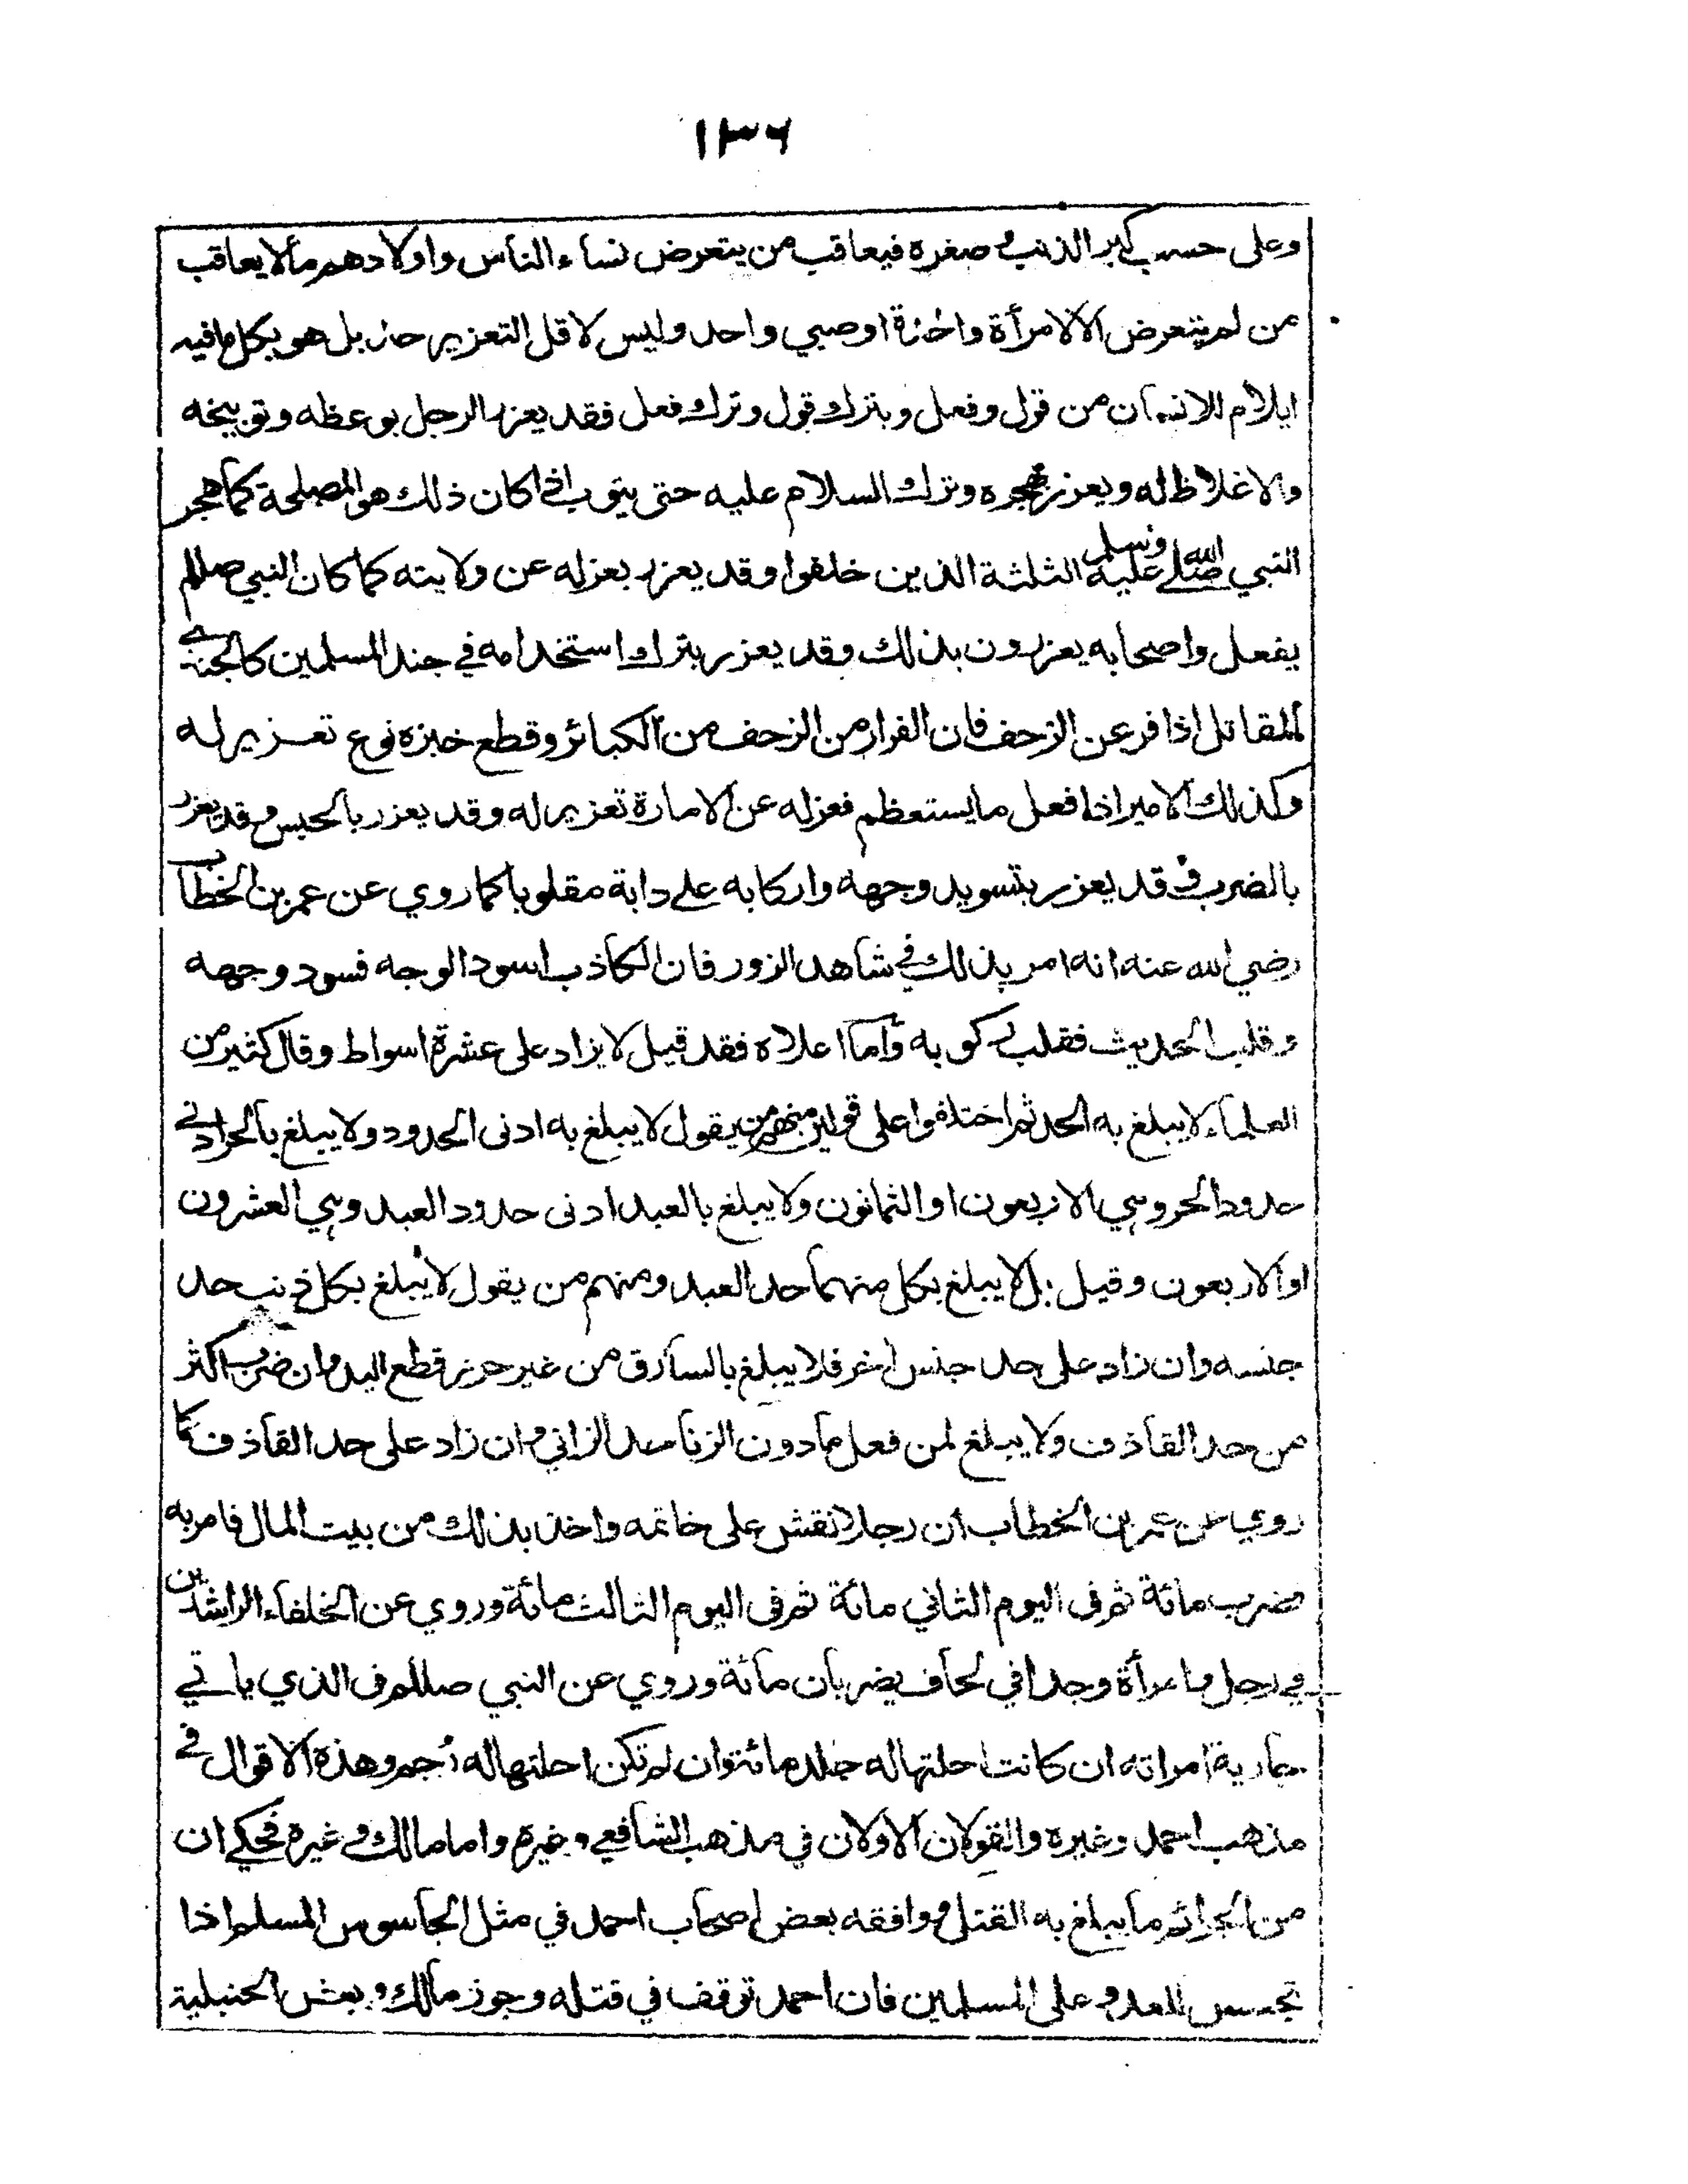 ١٣٦
وعلى حسب كبر الذنب و صغره فيعاقب من يتعرض نساء الناس واولادهم مالا يعاقب
من لم يتعرض الا لامرأة واحدة او صبي واحد وليس لاقل التعزير حد بل هو بكل ما فيه
ايلام للانسان من قول وفعل وبترك قول وترك فعل فقد يعزر الرجل بوعظه وتوبيخه
والاغلاظ له ويعزر بهجره وترك السلام عليه حتى يتوب اذا كان ذلك هو المصلحة كما هجر
النبي صلى الله عليه وسلم الثلثة الذين خلفوا وقد يعزر بعزله عن ولايته كما كان النبي صللم
يفعل واصحابه يعزرون بذلك وقد يعزر بترك استخدامه في جند المسلمين كالجندي
المقاتل اذا فر عن الزحف فان الفرار من الزحف من الكبائر وقطع خبزه نوع تعزير له
وكذلك الامير اذا فعل ما يستعظم فعزله عن الامارة تعزير له وقد يعزر بالحبس وقد يعزر
بالضرب و قد يعزر بتسويد وجهه واركابه على دابة مقلوبا كما روي عن عمر بن الخطاب
رضي الله عنه انه امر بذلك في شاهد الزور فان الكاذب اسود الوجه فسود وجهه
وقلب الحديث فقلب ركوبه واما اعلاه فقد قيل لا يزاد على عشرة اسواط وقال كثير من
العلماء لا يبلغ به الحد ثم اختلفوا على قولين منهم من يقول لا يبلغ به ادنى الحدود ولا يبلغ بالحر ادنى
حدود الحر وهي الاربعون او الثمانون ولا يبلغ بالعبد ادنى حدود العبد وهي العشرون
او الاربعون وقيل بل لا يبلغ بكل منهما حد العبد ومنهم من يقول لا يبلغ بكل ذنب حد
جنسه وان زاد على حد جنس اخر فلا يبلغ بالسارق من غير حرز قطع اليد وان ضرب اكثر
من حد القاذف ولا يبلغ لمن فعل ما دون الزنا حد الزاني وان زاد على حد القاذف كما
روي عن عمر بن الخطاب ان رجلا نقش على خاتمه واخذ بذلك من بيت المال فامر به
فضرب مائة ثم في اليوم الثاني مائة ثم في اليوم الثالث مائة وروي عن الخلفاء الراشدين
في رجل وامرأة وجدا في لحاف يضربان مائة وروي عن النبي صللم في الذي ياتي
جارية امراته ان كانت احلتها له جلد مائة وان لم تكن احلتها له رجم وهذه الاقوال في
مذهب احمد وغيره والقولان الاولان في مذهب الشافعي وغيره واما مالك و غيره فحكي ان
من الجرائم ما يبلغ به القتل و وافقه بعض اصحاب احمد في مثل الجاسوس المسلم اذا
تجسس للعدو على المسلمين فان احمد توقف في قتله وجوز مالك وبعض الحنبلية